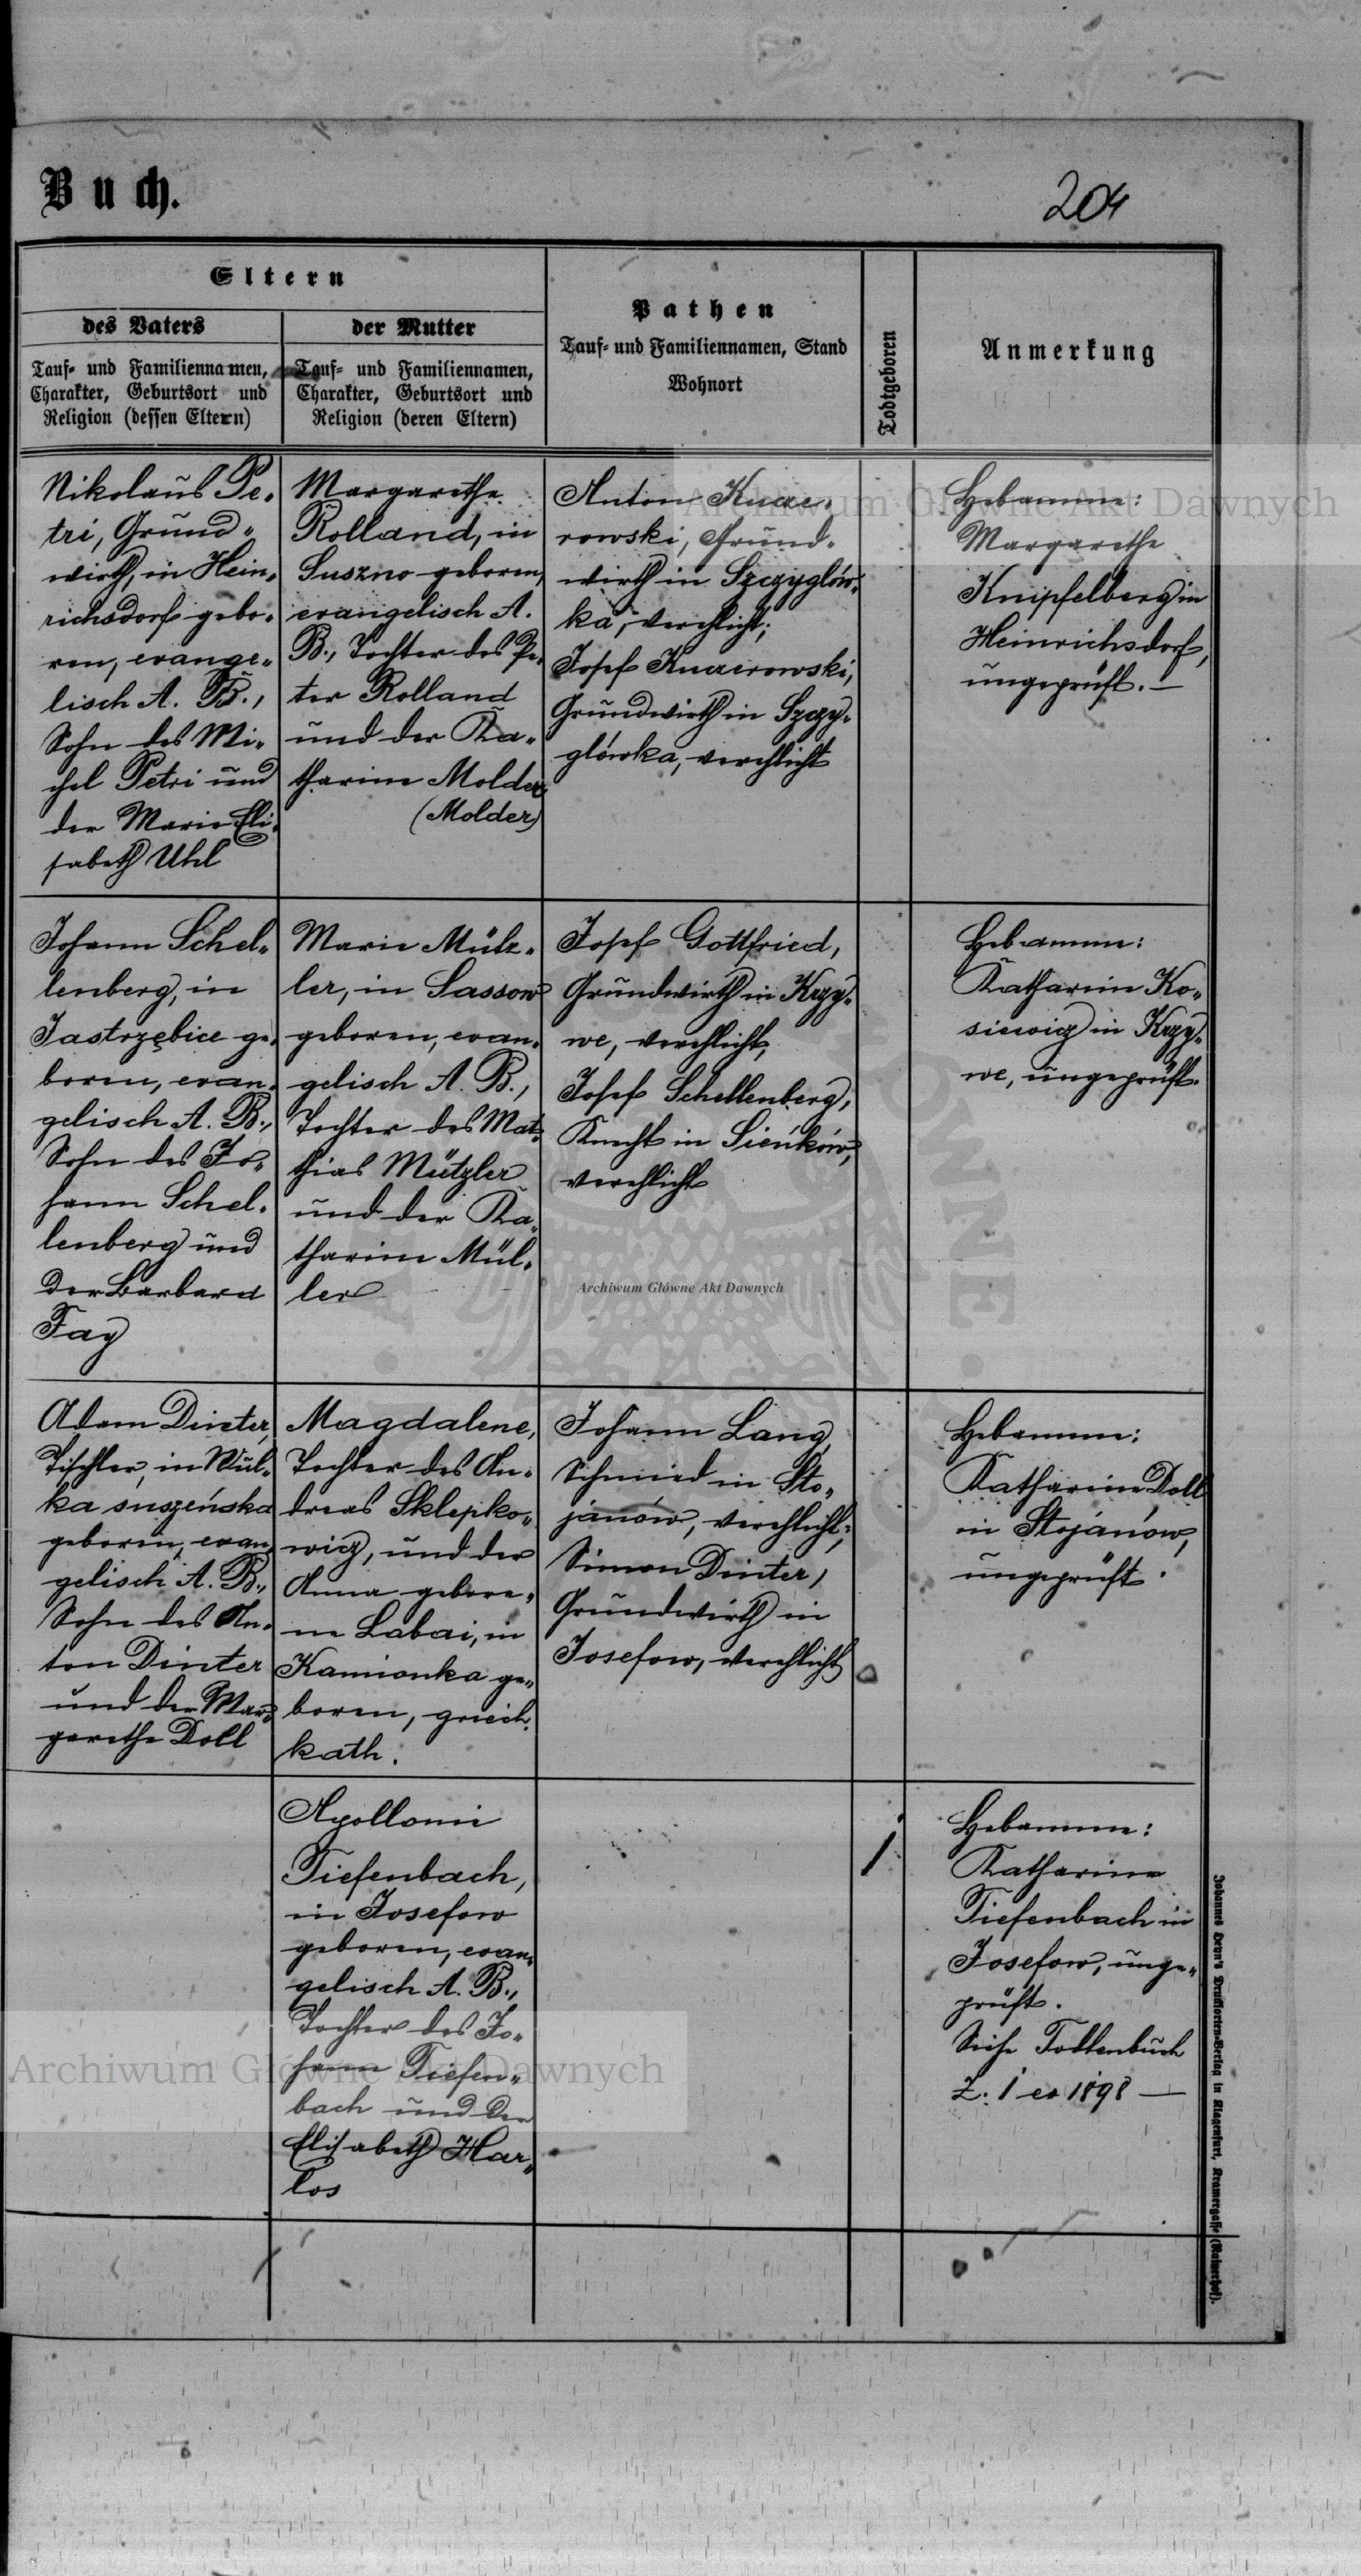 Buch.
204
Eltern
des Vaters
Tauf- und Familiennamen,
Charakter, Geburtsort und
Religion (dessen Eltern)
der Mutter
Tauf- und Familiennamen,
Charakter, Geburtsort und
Religion (deren Eltern)
Pathen
Tauf- und Familiennamen, Stand
Wohnort
Todtgeboren
Anmerkung
Nikolaus Pe-
tri, Grund-
wirth, in Hein-
richsdorf gebo-
ren, evange-
lisch A. B.,
Sohn des Mi-
chel Petri und
der Marie Eli-
sabeth Uhl
Margarethe
Rolland, in
Suszno geboren,
evangelisch A.
B., Tochter des Pe-
ter Rolland
und der Ka-
tharine Molder
(Molder)
Anton
rowski, Grund-
wirth in Szczyglów-
ka, verehlicht;
Josef
Grundwirth in Szczy-
glówka, verehlicht
Hebamme:
Margarethe
Knipfelberg in
Heinrichsdorf,
ungeprüft. —
Johann Schel-
lenberg, in
Jastrzębice ge-
boren, evan-
gelisch A. B.,
Sohn des Jo-
hann Schel-
lenberg und
der Barbara
Fay
Marie Mütz-
ler, in Sassow
geboren, evan-
gelisch A. B.,
Tochter des Mat-
thias Mützler
und der Ka-
tharine Mül-
ler
Josef Gottfried,
Grundwirth in Krzy-
we, verehlicht,
Josef Schellenberg,
Knecht in Sieńków,
verehlicht
Hebamme:
Katharine Ko-
siewicz in Krzy-
we, ungeprüft.
Adam Dinter,
Tischler, in Wul-
ka suszeńska
geboren, evan-
gelisch A. B.,
Sohn des An-
ton Dinter
und der Mar-
garethe Doll
Magdalene,
Tochter des An-
dreas Sklepko-
wicz, und der
Anna gebore-
ne Labai, in
Kamionka ge-
boren, griech.
kath.
Johann Lang,
Schmied in Sto-
janów, verehlicht;
Simon Dinter,
Grundwirth in
Josefow, verehlicht
Hebamme:
Katharine Doll
in Stojanów,
ungeprüft.
Apollonie
Tiefenbach,
in Josefow
geboren, evan-
gelisch A. B.,
Tochter des Jo-
hann Tiefen-
bach und der
Elisabeth Har-
los
1
Hebamme:
Katharine
Tiefenbach in
Josefow, unge-
prüft.
Siehe Todtenbuch
Z. 1 ex 1898 —
Johannes Leon's Drucksorten-Verlag in Klagenfurt, Kramergasse (Rainerhof).
Archiwum Główne Akt Dawnych
Archiwum Główne Akt Dawnych
Archiwum Główne Akt Dawnych